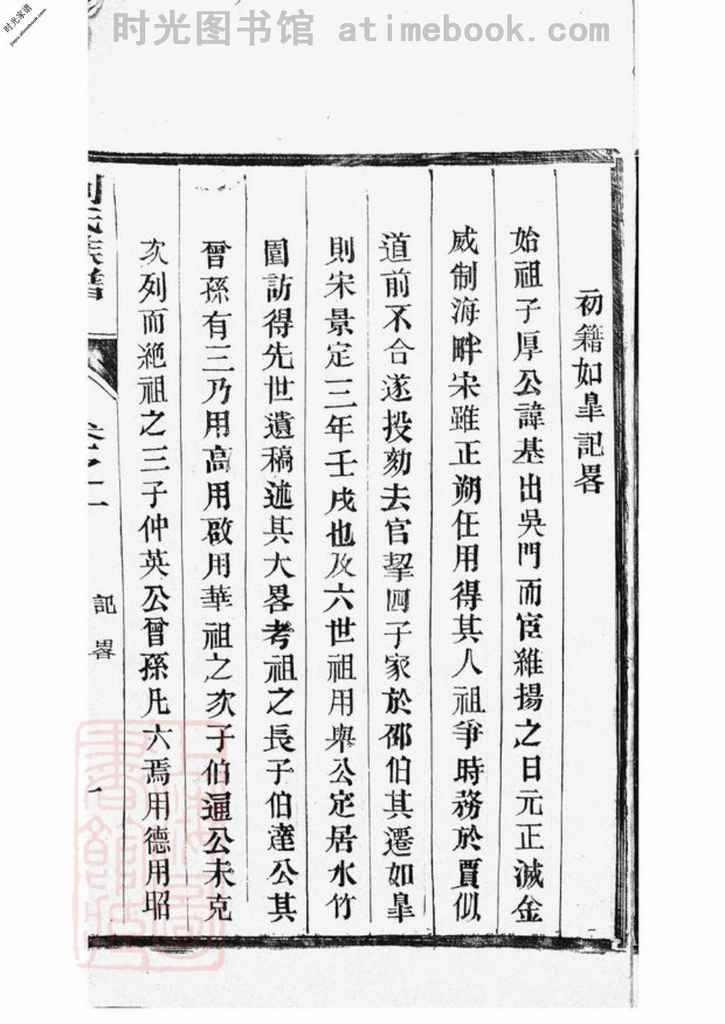 时光图书馆 atimebook.com
时光家谱
初籍如臯記畧
始祖子厚公諱基出吳門而宦維揚之日元正滅金
威制海畔宋雖正朔任用得其人祖爭時務於賈似
道前不合遂投劾去官挈四子家於邵伯其遷如臯
則宋景定三年壬戌也及六世祖用舉公定居水竹
園訪得先世遺稿述其大畧考祖之長子伯達公其
曾孫有三乃用高用啟用華祖之次子伯通公未克
次列而絕祖之三子仲英公曾孫凡六焉用德用昭
氏族譜
記畧